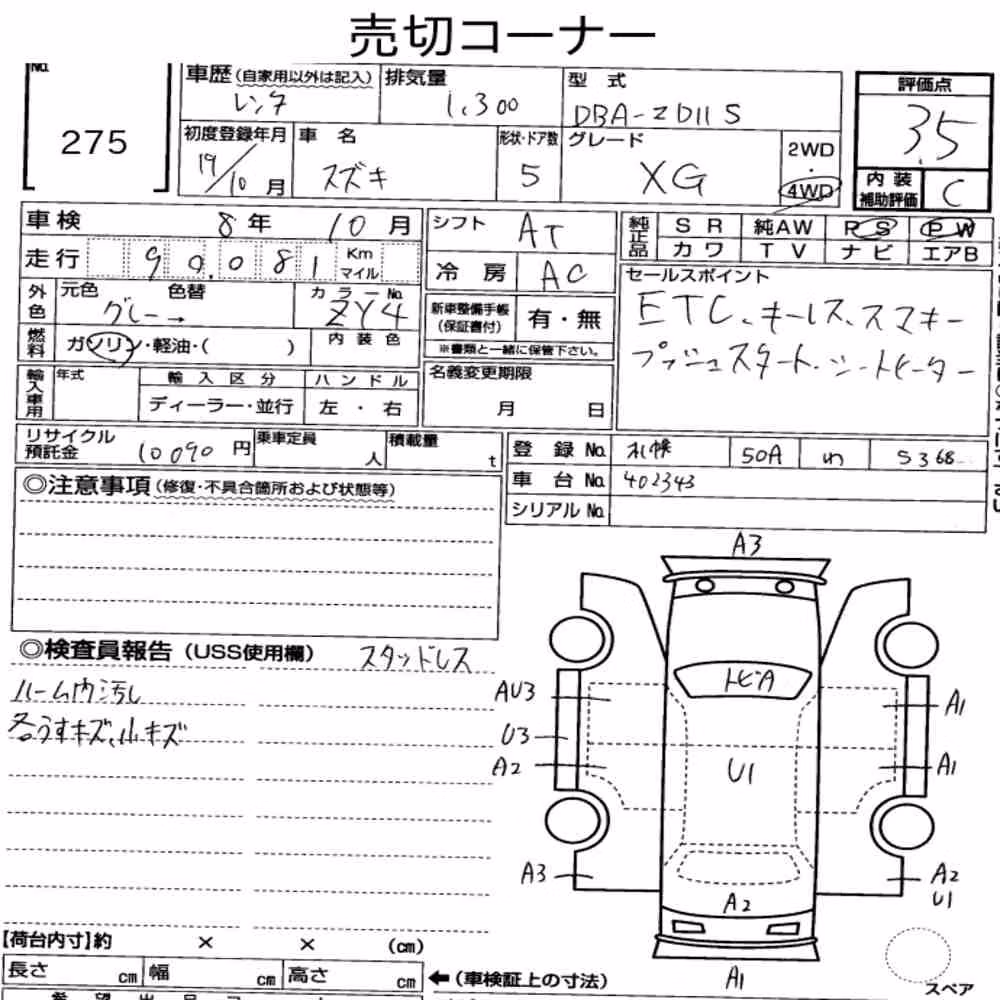 売切コーナー
No. 275
車歴(自家用以外は記入) レンタ
排気量 1,300
型式 DBA-ZD11S
評価点 3.5
初度登録年月 19/10月
車名 スズキ
形状・ドア数 5
グレード XG
2WD・4WD
内装補助評価 C
車検 8年 10月
シフト AT
純正品 SR 純AW PS PW
カワ TV ナビ エアB
走行 90.081 Km マイル
冷房 AC
セールスポイント
ETC、キーレス、スマキー
プッシュスタート・シートヒーター
外色 元色 色替 グレー→
カラーNo. ZY4
新車整備手帳(保証書付) 有・無
※書類と一緒に保管下さい。
燃料 ガソリン・軽油・( )
内装色
輸入車用 年式 輸入区分 ハンドル
ディーラー・並行 左・右
名義変更期限
月 日
リサイクル預託金 10090円
乗車定員 人
積載量 t
登録No. 札幌 50A わ 5368
車台No. 402343
シリアルNo.
◎注意事項(修復・不具合箇所および状態等)
◎検査員報告(USS使用欄) スタッドレス
ルーム内汚し
各うすキズ、小キズ
A3
トビA
AU3
A1
U3
A2
U1
A1
A3
A2
U1
A2
A1
スペア
【荷台内寸】約 × × (cm)
長さ cm 幅 cm 高さ cm
←(車検証上の寸法)